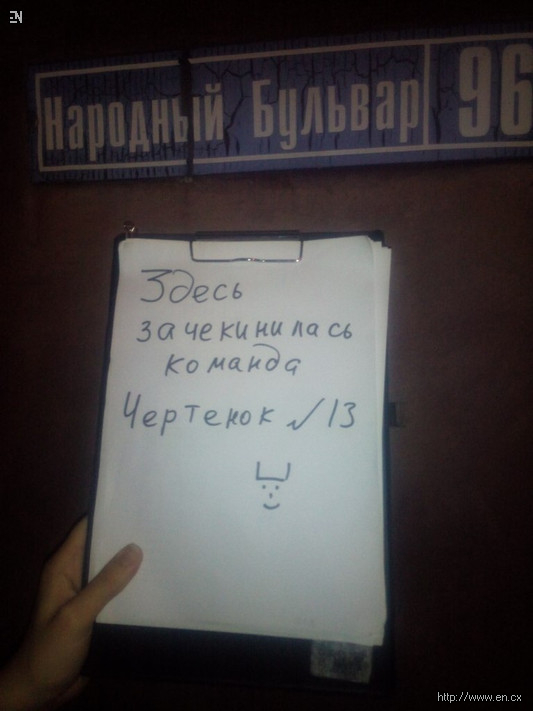 EN
Народный Бульвар 96
Здесь
зачекинилась
команда
Чертенок №13
http://www.en.cx